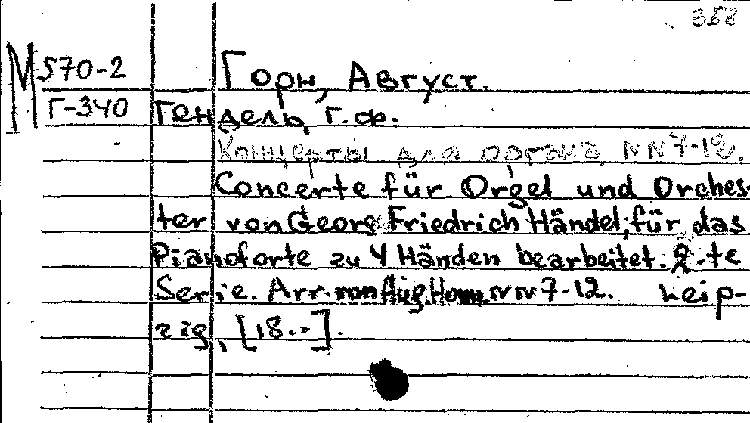 358
М 570-2
Г-340
Горн, Август.
Гендель, Г.Ф.
Концерты для органа, NN 7-12.
Concerte für Orgel und Orches-
ter von Georg Friedrich Händel, für das
Pianoforte zu 4 Händen bearbeitet. 2-te
Serie. Arr. von Aug. Horn. NN 7-12. Leip-
zig, [18--].